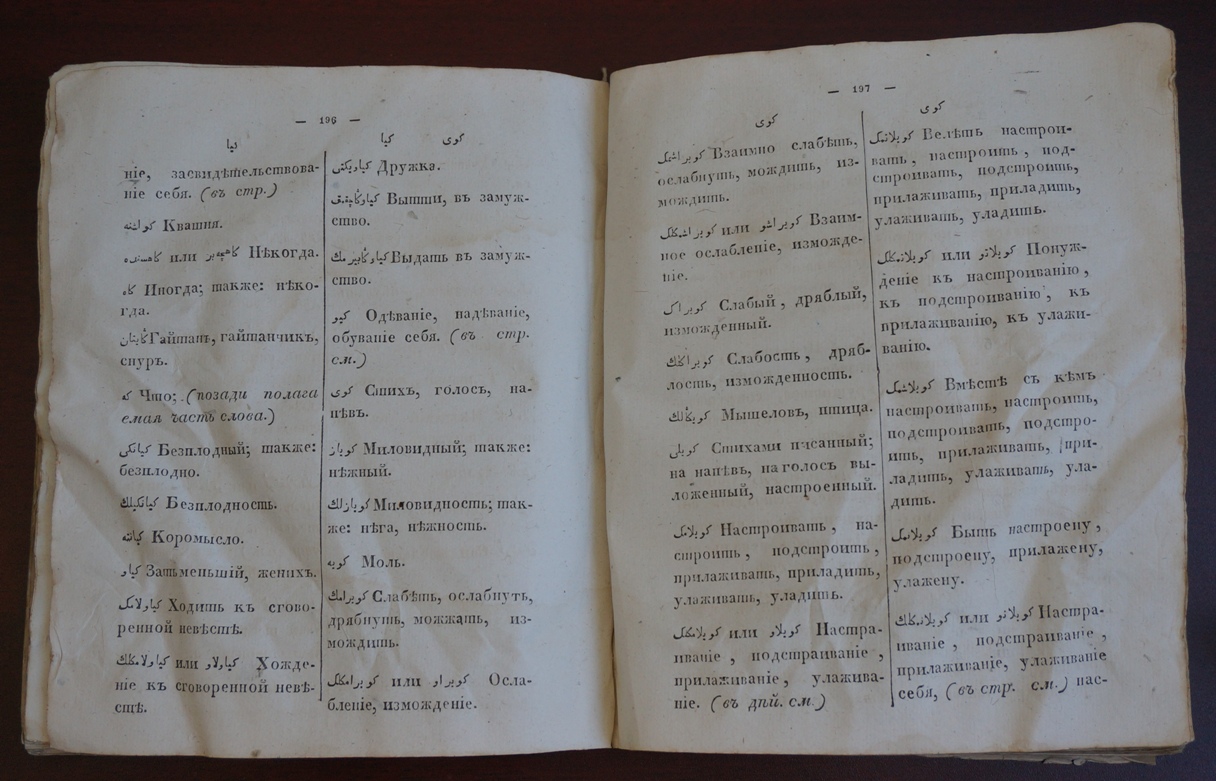 — 196 —
كيا
ніе, засвидѣтельствова-
ніе себя. (въ стр.)
Квашня.
или Нѣкогда.
كاه Иногда; также: нѣко-
гда.
Гайтанъ, гайтанчикъ,
снуръ.
كه Что; (позади полага
емая часть слова.)
Безплодный; также:
безплодно.
Безплодность.
Коромысло.
كياو Затьменьшій, женихъ.
كياولامك Ходить къ сгово-
ренной невѣстѣ.
كياولامكلك или كياولاو Хожде-
ніе къ сговоренной невѣ-
стѣ.
كيا كوى
Дружка.
Вытти, въ замуж-
ство.
Выдать въ замуж-
ство.
كيو Одѣваніе, надѣваніе,
обуваніе себя. (въ стр.
см.)
كوى Стихъ, голосъ, на-
пѣвъ.
كوياز Миловидный; также:
нѣжный.
كويازلك Миловидность; так-
же: нѣга, нѣжность.
كويه Моль.
كويرامك Слабѣть, ослабнуть,
дрябнуть, можжать, из-
мождить.
كويرامكلك или كويراو Осла-
бленіе, изможденіе.
— 197 —
كوى
كويراشمك Взаимно слабѣть,
ослабнуть, мождить, из-
мождить.
كويراشمكلك или كويراشو Взаим-
ное ослабленіе, изможде-
ніе.
كويراك Слабый, дряблый,
изможденный.
كويراكلك Слабость, дряб-
лость, изможденность.
Мышеловъ, птица.
كويلى Стихами писанный;
на напѣвъ, на голосъ вы-
ложенный, настроенный.
كويلامك Настроивать, на-
строить, подстроить,
прилаживать, приладить,
улаживать, уладить.
كويلامكلك или كويلاو Настра-
иваніе, подстраиваніе,
прилаживаніе, улажива-
ніе. (въ дѣй. см.)
كوى
كويلاتمك Велѣть настрои-
вать, настроить, под-
строивать, подстроить,
прилаживать, приладить,
улаживать, уладить.
كويلاتمكلك или كويلاتو Понуж-
деніе къ настроиванію,
къ подстроиванію, къ
прилаживанію, къ улажи-
ванію.
كويلاشمك Вмѣстѣ съ кѣмъ
настроивать, настроить,
подстроивать, подстро-
ить, прилаживать, при-
ладить, улаживать, ула-
дить.
كويلانمك Быть настроену,
подстроену, прилажену,
улажену.
كويلانمكلك или كويلانو Настра-
иваніе, подстраиваніе,
прилаживаніе, улаживаніе
себя, (въ стр. см.) нас-